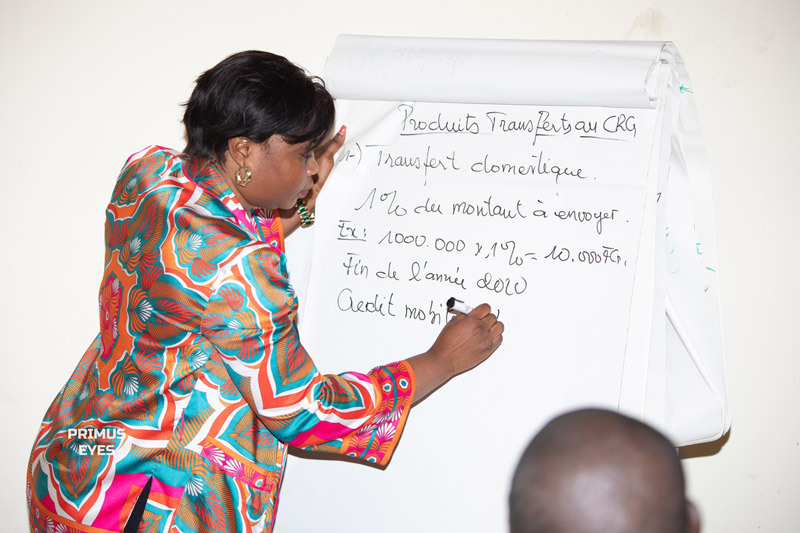 Produits Transferts au CRG
1-) Transfert domestique.
1% du montant à envoyer.
Ex: 1000.000 x 1% = 10.000 FG.
Fin de l'année 2020
Credit mobi
PRIMUS
EYES